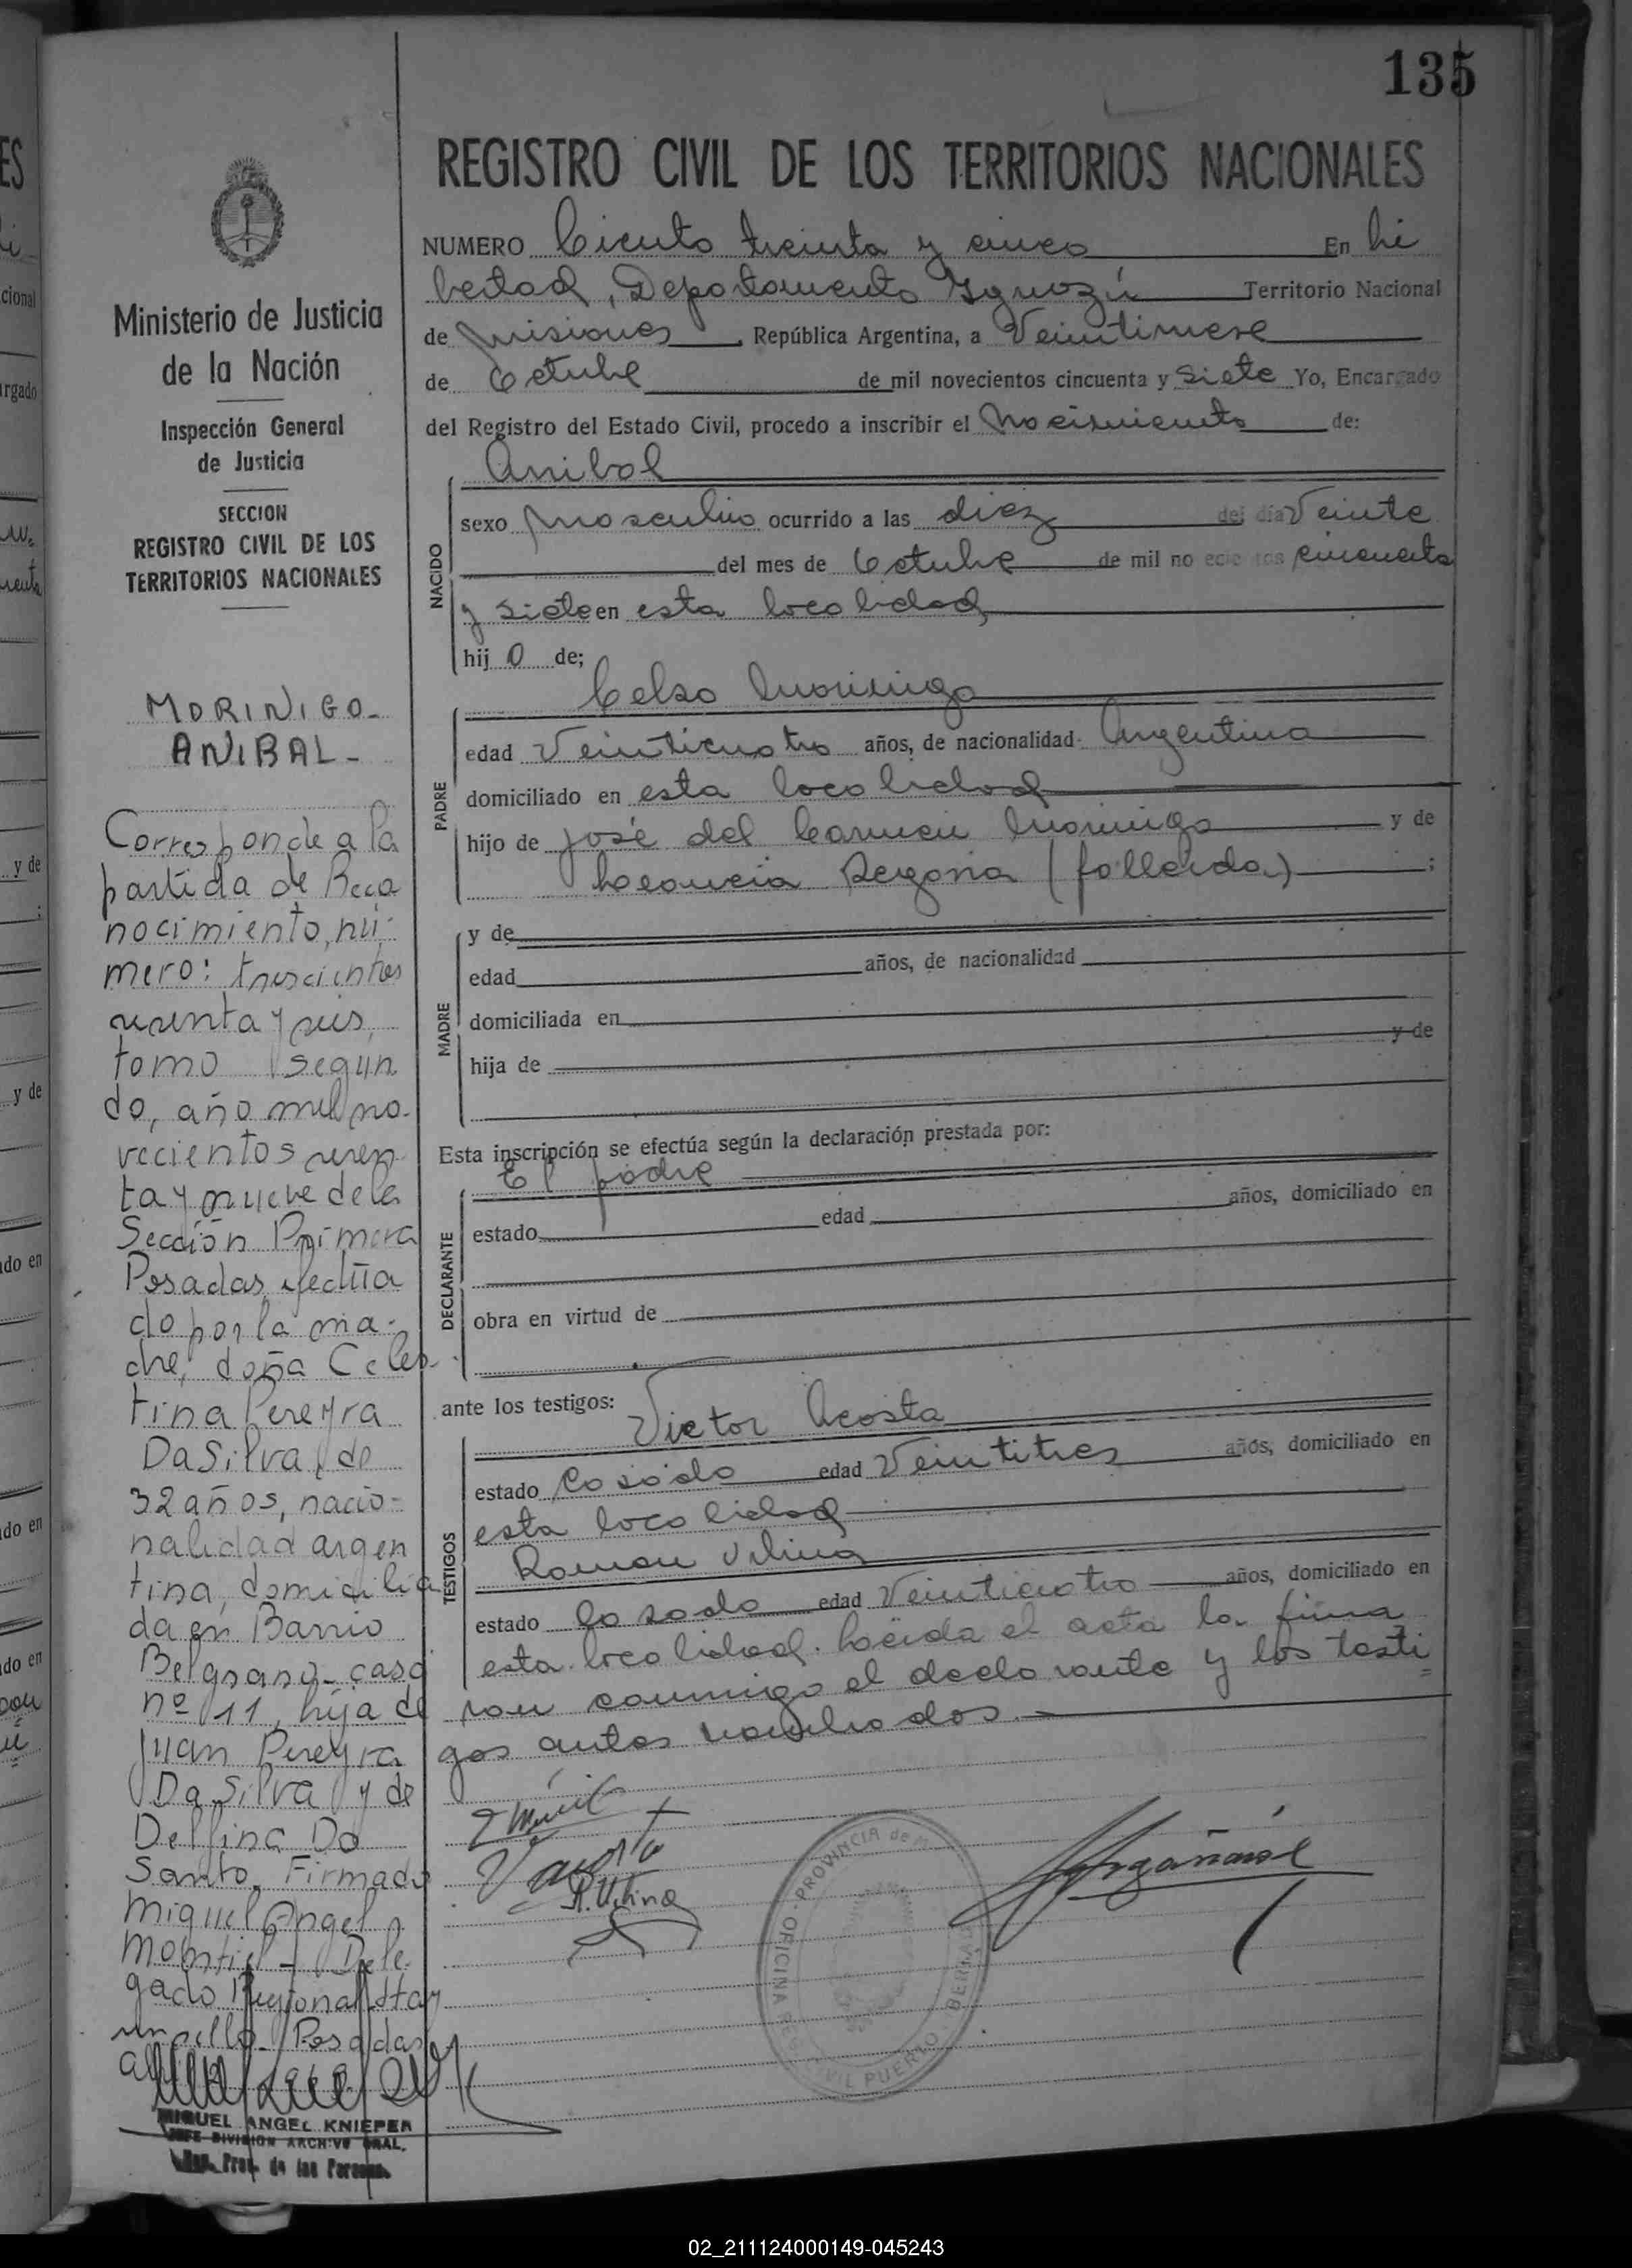 135
REGISTRO CIVIL DE LOS TERRITORIOS NACIONALES
NUMERO Ciento treinta y cinco En Li
bertad, Departamento Iguazú Territorio Nacional
de Misiones, República Argentina, a Veintinueve
de Octubre de mil novecientos cincuenta y siete Yo, Encargado
del Registro del Estado Civil, procedo a inscribir el Nacimiento de:
NACIDO
Anibal
sexo Masculino ocurrido a las diez del día Veinte
del mes de Octubre de mil no ecie tos cincuenta
y siete en esta localidad
hij o de;
PADRE
Celso Morinigo
edad Veinticuatro años, de nacionalidad Argentina
domiciliado en esta localidad
hijo de José del Carmen Morinigo y de
(fallecida) ;
MADRE
y de
edad años, de nacionalidad
domiciliada en
hija de y de
Esta inscripción se efectúa según la declaración prestada por:
DECLARANTE
El padre
estado edad años, domiciliado en
obra en virtud de
ante los testigos:
TESTIGOS
Victor Acosta
estado Casado edad Veintitres años, domiciliado en
esta localidad
Roman
estado Casado edad Veinticuatro años, domiciliado en
esta localidad. Leída el acta la firma
ron conmigo el declarante y los testi
gos antes nombrados.
OFICINA REG. CIVIL PUERTO BERMEJO - PROVINCIA de M
Ministerio de Justicia
de la Nación
Inspección General
de Justicia
SECCION
REGISTRO CIVIL DE LOS
TERRITORIOS NACIONALES
MORINIGO
ANIBAL-
Corresponde a la
partida de Reco
nocimiento, nú-
mero: trescientos
y seis,
tomo segun
do, año mil no-
vecientos
ta y nueve de la
Sección Primera
Posadas, efectúa
do por la ma-
dre, doña Celes-
tina Pereyra
DaSilva, de
32 años, nacio-
nalidad argen
tina, domicilia
da en Barrio
Belgrano - casa
nº 11, hija de
Juan Pereyra
Da Silva y de
Delfina Do
Santo. Firmado
Miguel Angel
Montiel - Dele-
gado Regional. Hay
un sello. Posadas
MIGUEL ANGEL KNIEPER
JEFE DIVISION ARCHIVO GRAL.
02_211124000149-045243